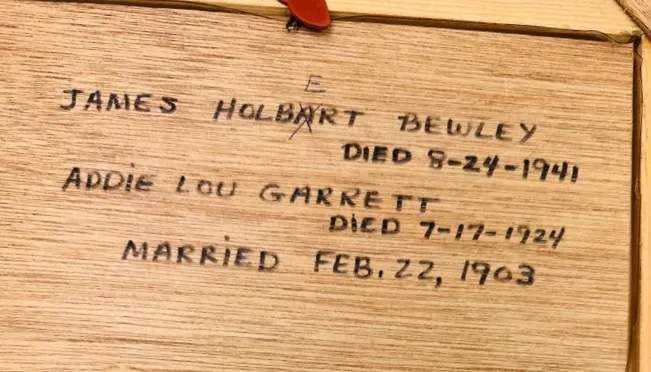 E
JAMES HOLBART BEWLEY
DIED 8-24-1941
ADDiE LOU GARRETT
DiED 7-17-1924
MARRiED FEB. 22, 1903